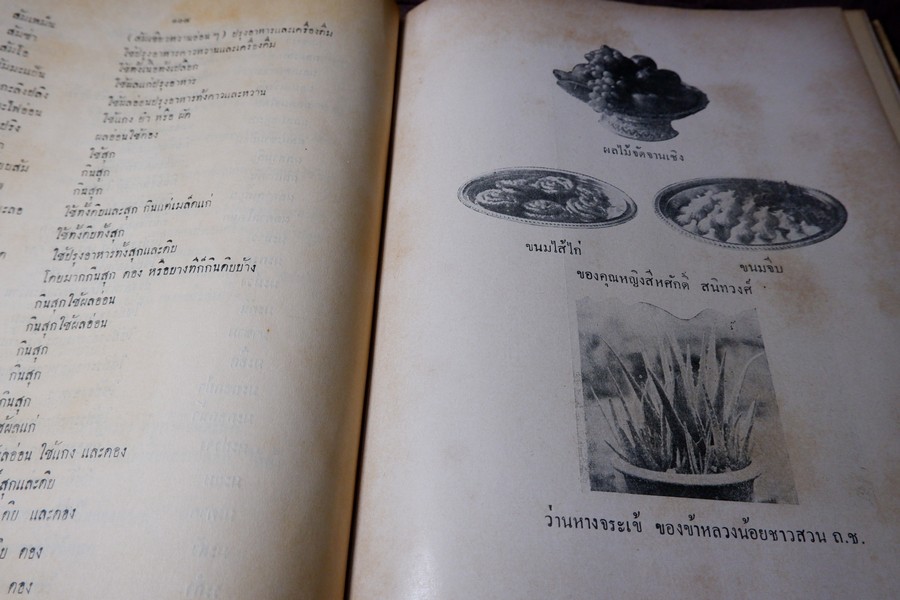 ส้มเหม็น
ส้มซ่า (ส้มเขียวหวานอ่อนๆ) ปรุงอาหารและเครื่องดื่ม
ส้มโอ ใช้ปรุงอาหารคาวหวานและเครื่องดื่ม
ใช้ทั้งเนื้อทั้งเปลือก
ใช้ผลแก่ปรุงอาหาร
ใช้ผลอ่อนปรุงอาหารทั้งคาวและหวาน
ใช้แกง ยำ หรือ ผัด
ผลอ่อนใช้ดอง
ใช้สุก
กินสุก
กินสุก
ใช้ทั้งดิบและสุก กินแต่เมล็ดแก่
ใช้ทั้งดิบทั้งสุก
ใช้ปรุงอาหารทั้งสุกและดิบ
โดยมากกินสุก ดอง หรือยางทีก็กินดิบบ้าง
กินสุกใช้ผลอ่อน
กินสุกใช้ผลอ่อน
กินสุก
กินสุก
กินสุก
ใช้ผลแก่
ผลอ่อน ใช้แกง และดอง
สุกและดิบ
ดิบ และดอง
ดอง
ดอง
ผลไม้จัดจานเชิง
ขนมไส้ไก่
ขนมจีบ
ของคุณหญิงสีหศักดิ์ สนิทวงศ์
ว่านหางจระเข้ ของข้าหลวงน้อยชาวสวน ถ.ช.